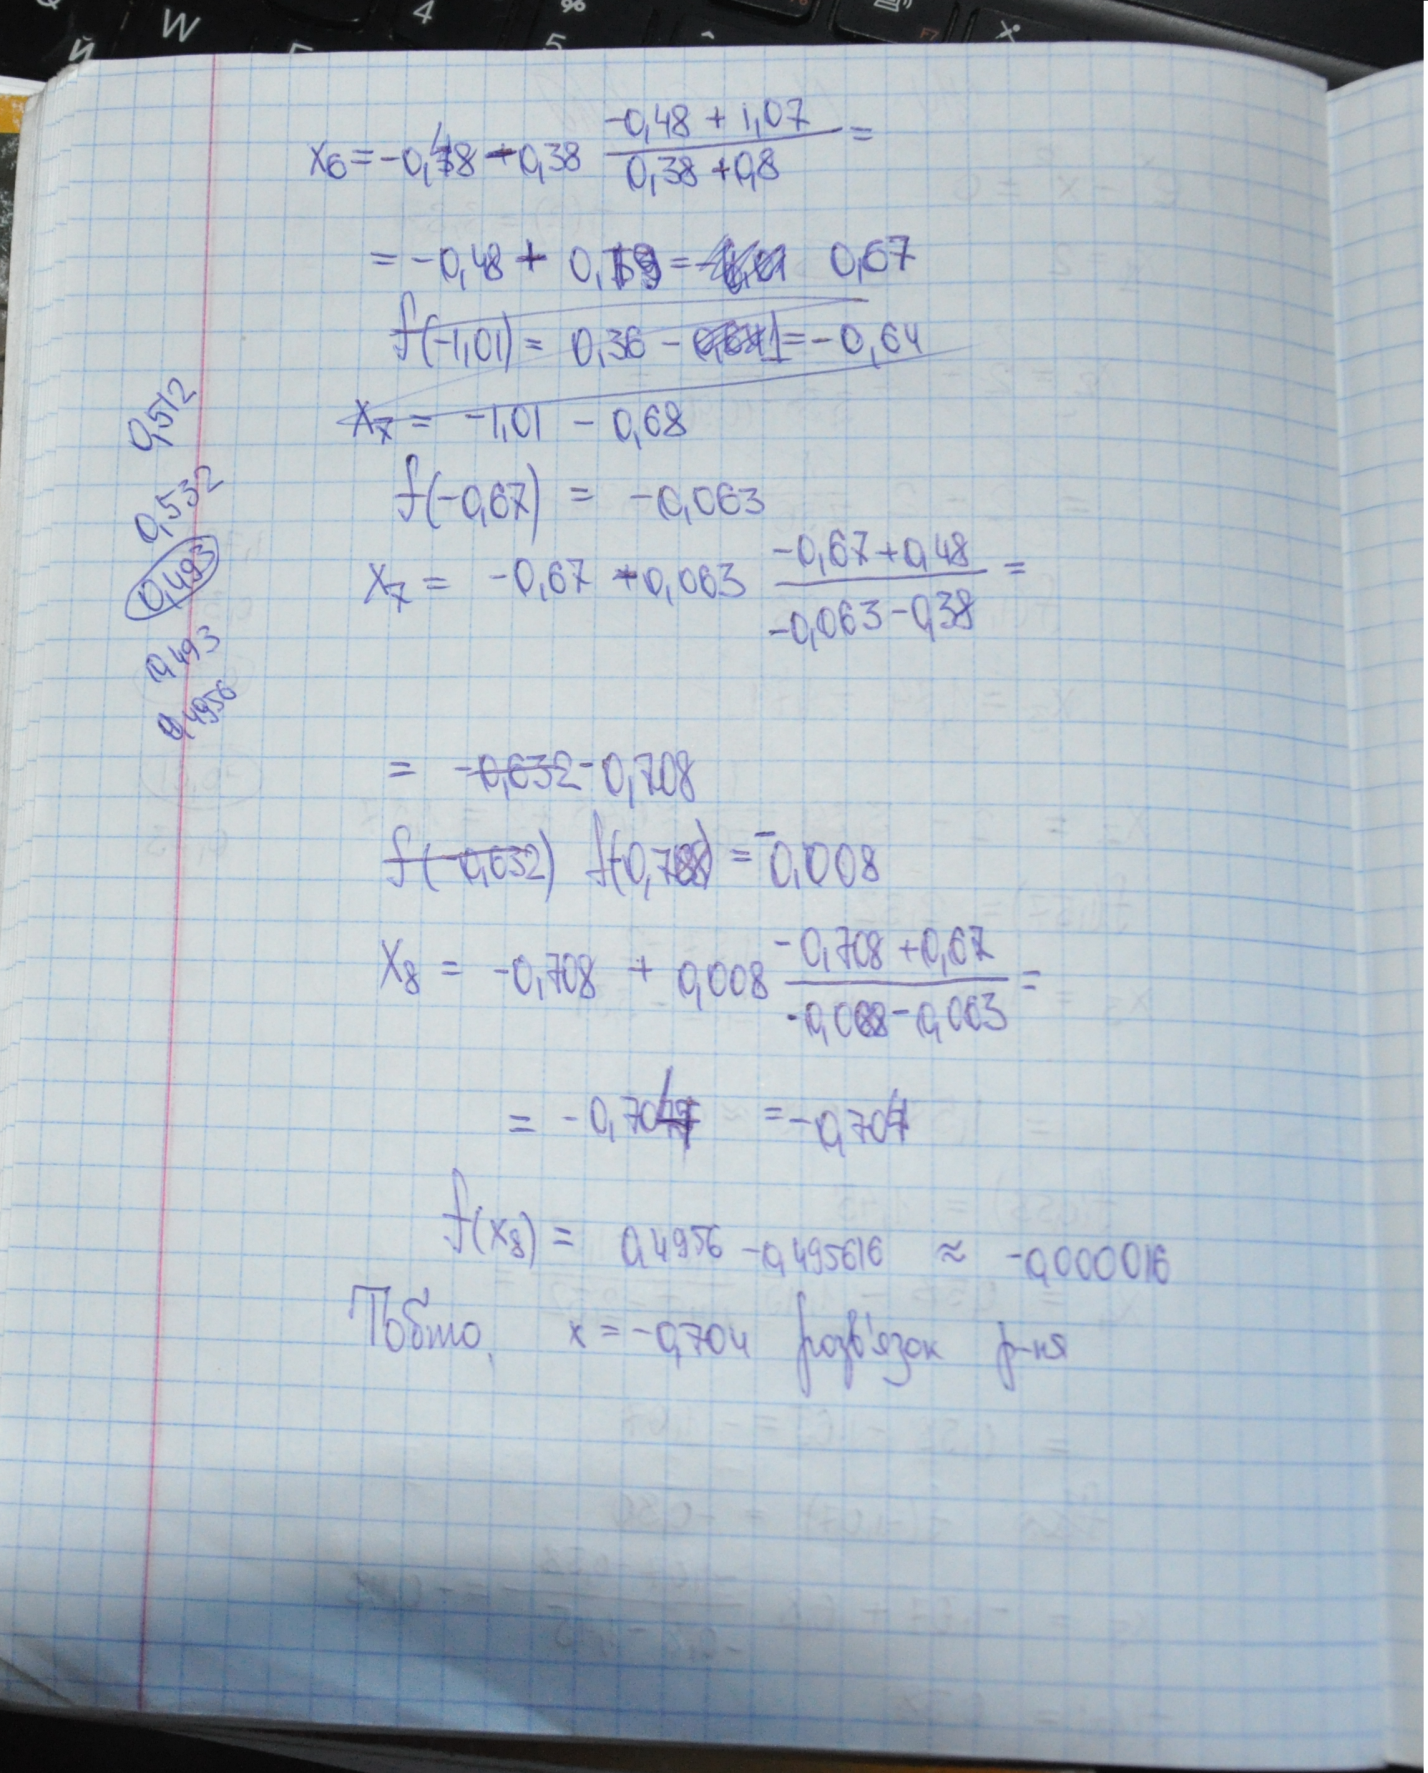 W 4 % 5 F7 Й
x₆ = -0,48 - 0,38 (-0,48 + 1,07)/(0,38 + 0,8) =
= -0,48 + 0,19 = 0,67
f(-1,01) = 0,36 - = -0,64
x₇ = -1,01 - 0,68
f(-0,67) = -0,063
x₇ = -0,67 + 0,063 (-0,67 + 0,48)/(-0,063 - 0,38) =
= -0,632 -0,708
f(-0,632) f(0,708) = -0,008
x₈ = -0,708 + 0,008 (-0,708 + 0,67)/(-0,008 - 0,063) =
= -0,704 = -0,704
f(x₈) = 0,4956 - 0,495616 ≈ -0,000016
Тобто, x = -0,704 розв'язок р-ня
0,512
0,532
0,493
0,493
0,4956